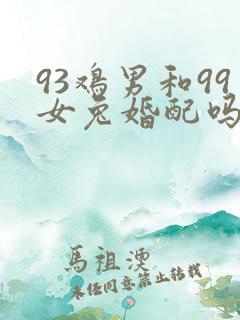 93鸡男和99
女兔婚配吗
馬祖溇
未任同意禁止转载